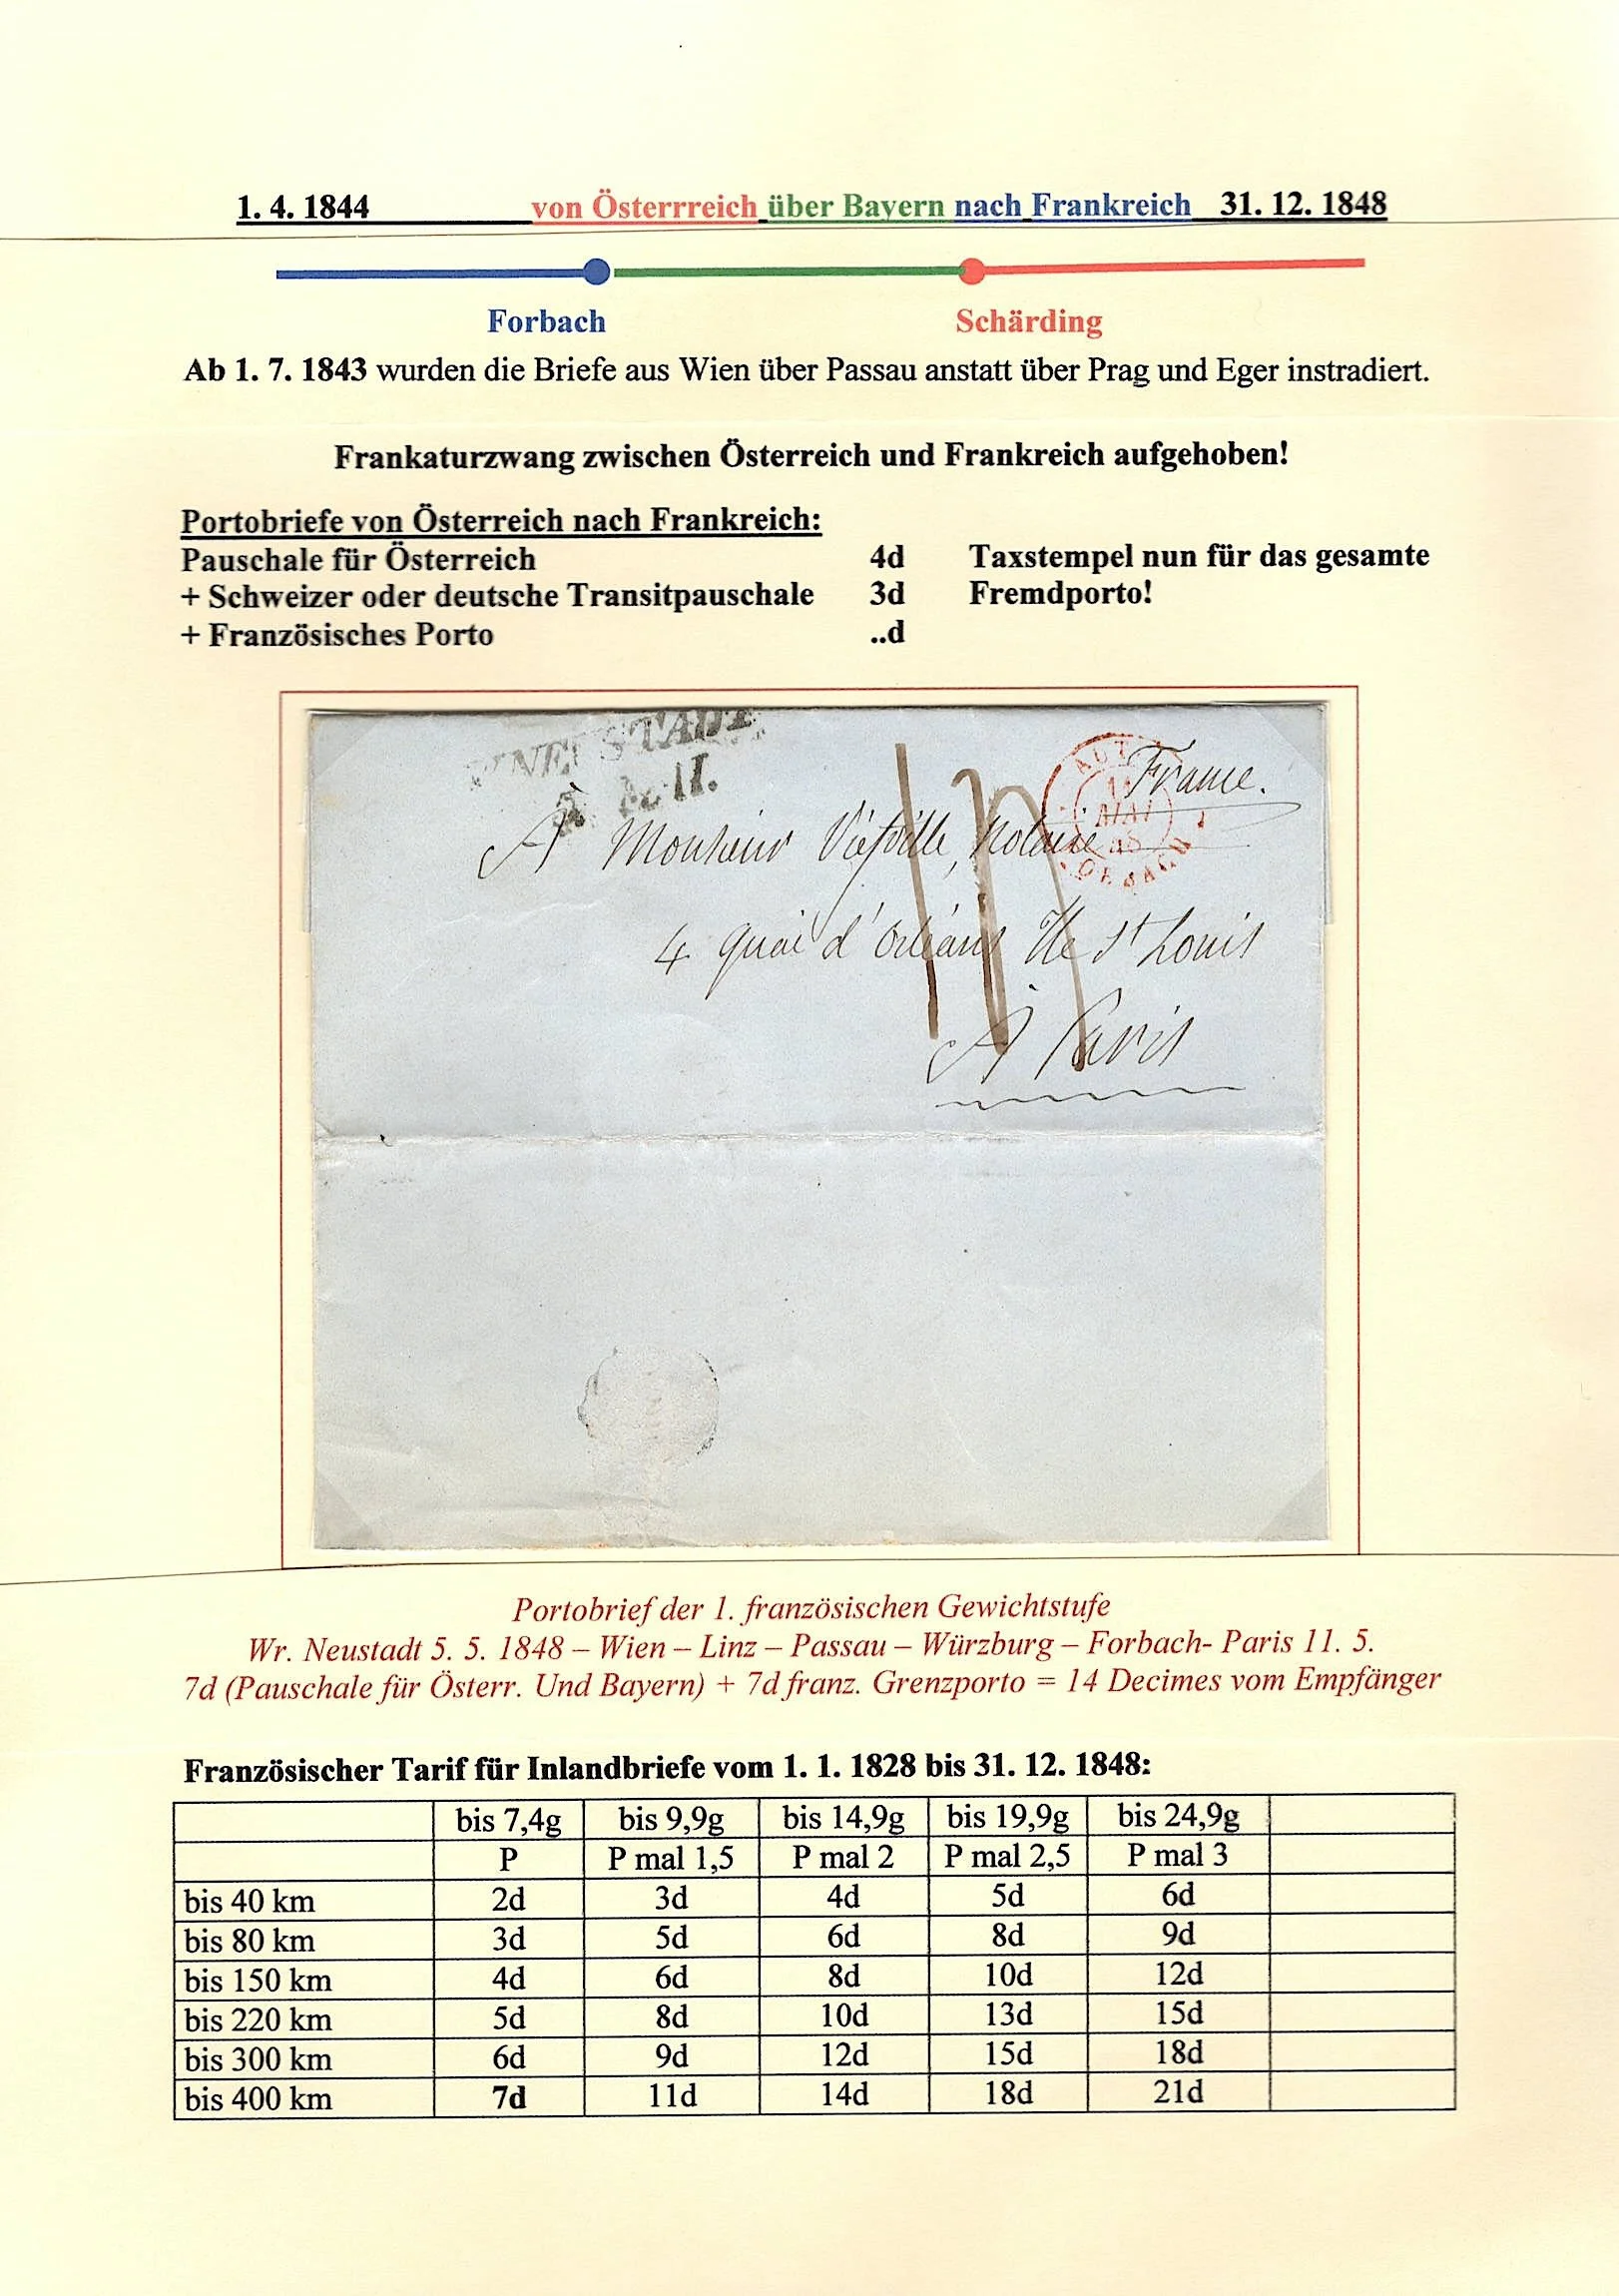 1. 4. 1844 von Österrreich über Bayern nach Frankreich 31. 12. 1848
Forbach Schärding
Ab 1. 7. 1843 wurden die Briefe aus Wien über Passau anstatt über Prag und Eger instradiert.
Frankaturzwang zwischen Österreich und Frankreich aufgehoben!
Portobriefe von Österreich nach Frankreich:
Pauschale für Österreich 4d Taxstempel nun für das gesamte
+ Schweizer oder deutsche Transitpauschale 3d Fremdporto!
+ Französisches Porto ..d
NEUSTADT
France.
MAI
A Monsieur Viefville, Notaire
4 quai d'Orléans Ile St Louis
A Paris
Portobrief der 1. französischen Gewichtstufe
Wr. Neustadt 5. 5. 1848 – Wien – Linz – Passau – Würzburg – Forbach- Paris 11. 5.
7d (Pauschale für Österr. Und Bayern) + 7d franz. Grenzporto = 14 Decimes vom Empfänger
Französischer Tarif für Inlandbriefe vom 1. 1. 1828 bis 31. 12. 1848:
bis 7,4g bis 9,9g bis 14,9g bis 19,9g bis 24,9g
P P mal 1,5 P mal 2 P mal 2,5 P mal 3
bis 40 km 2d 3d 4d 5d 6d
bis 80 km 3d 5d 6d 8d 9d
bis 150 km 4d 6d 8d 10d 12d
bis 220 km 5d 8d 10d 13d 15d
bis 300 km 6d 9d 12d 15d 18d
bis 400 km 7d 11d 14d 18d 21d